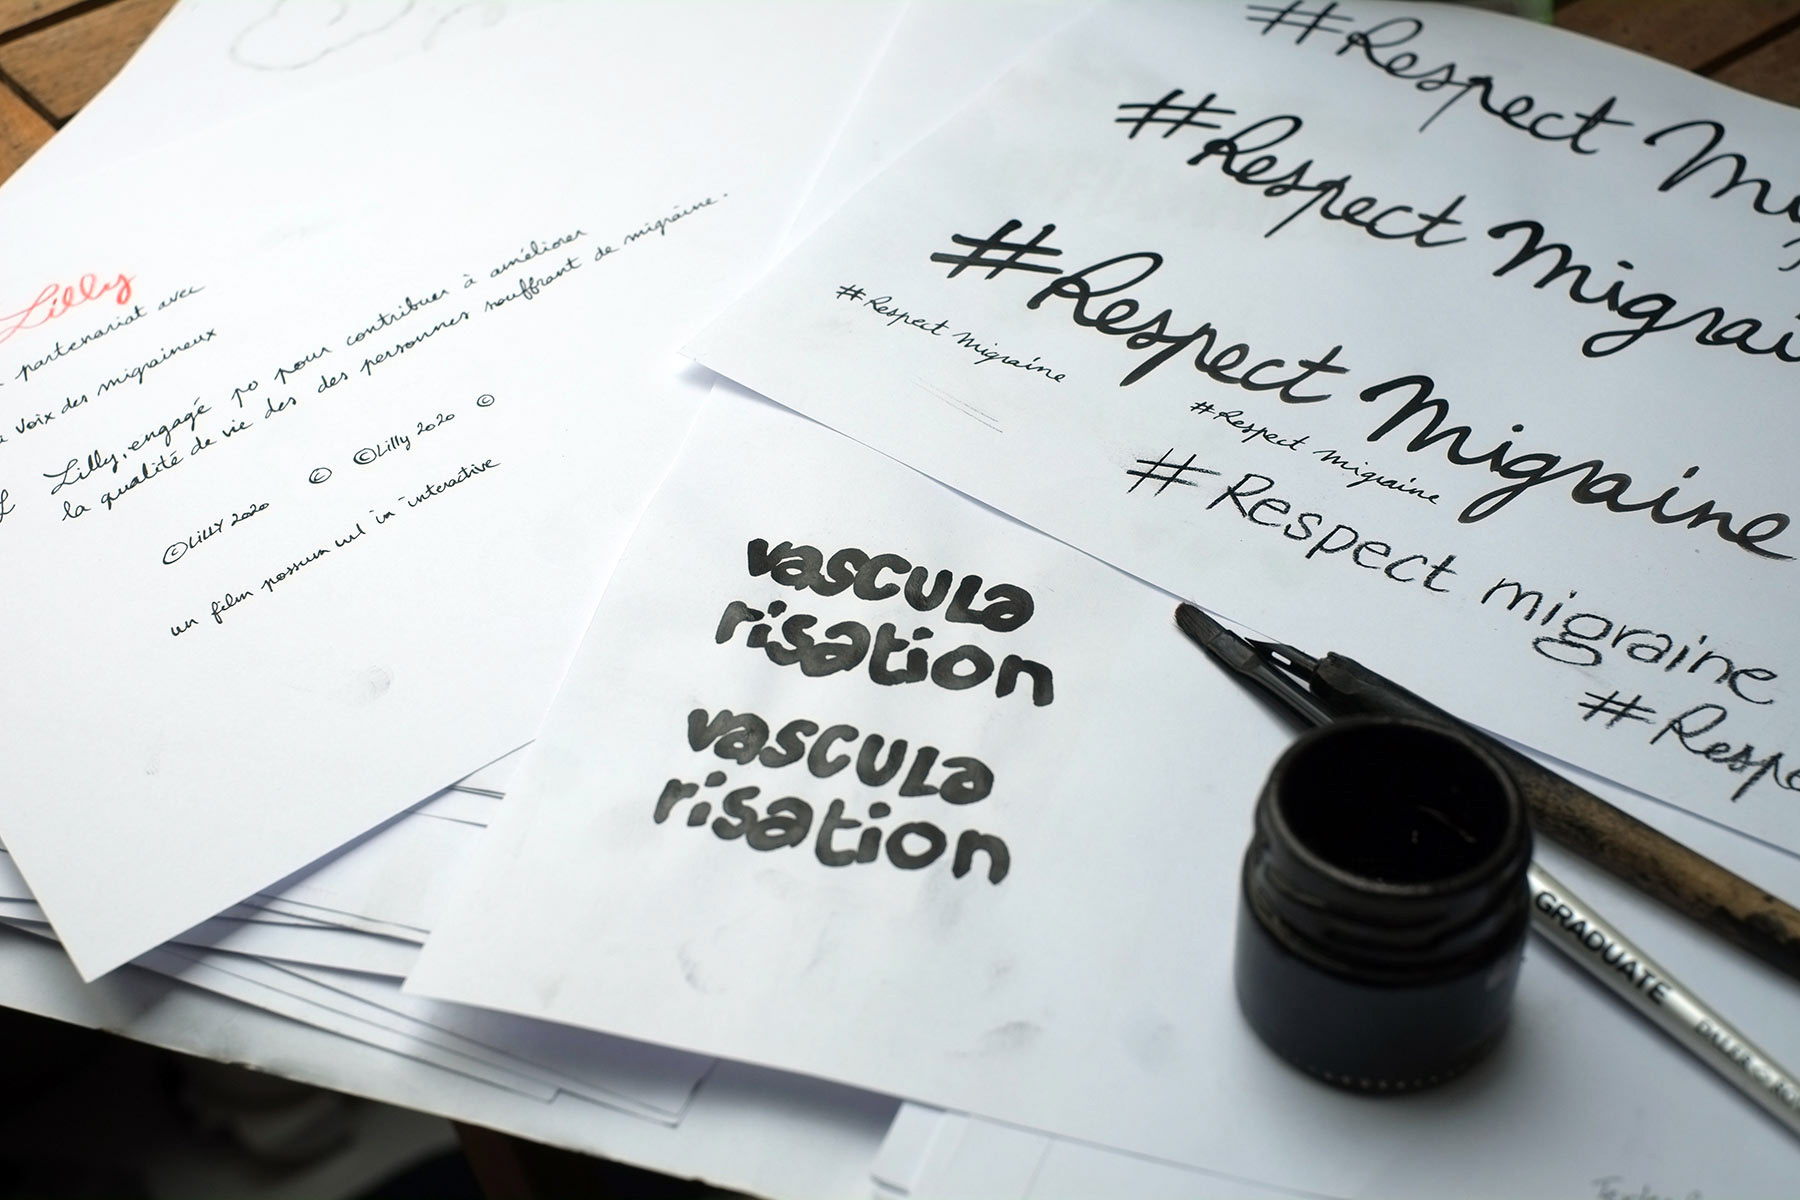 Lilly
partenariat avec
voix des migraineux
Lilly, engagé po pour contribuer à améliorer
la qualité de vie des des personnes souffrant de migraine.
©LILLY 2020 © ©Lilly 2020 ©
un film possum
interactive
#Respect
#Respect Migrai
#Respect Migraine
#Respect Migraine
#Respect Migraine
# Respect migraine
#Respe
vascula
risation
vascula
risation
GRADUATE